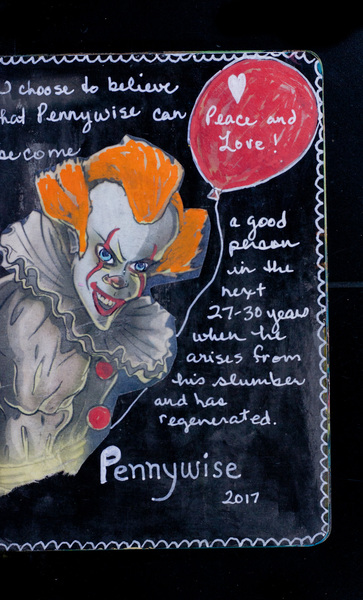 I choose to believe
that Pennywise can
become
Peace and
Love!
a good
person
in the
next
27-30 years
when he
arises from
his slumber
and has
regenerated.
Pennywise
2017